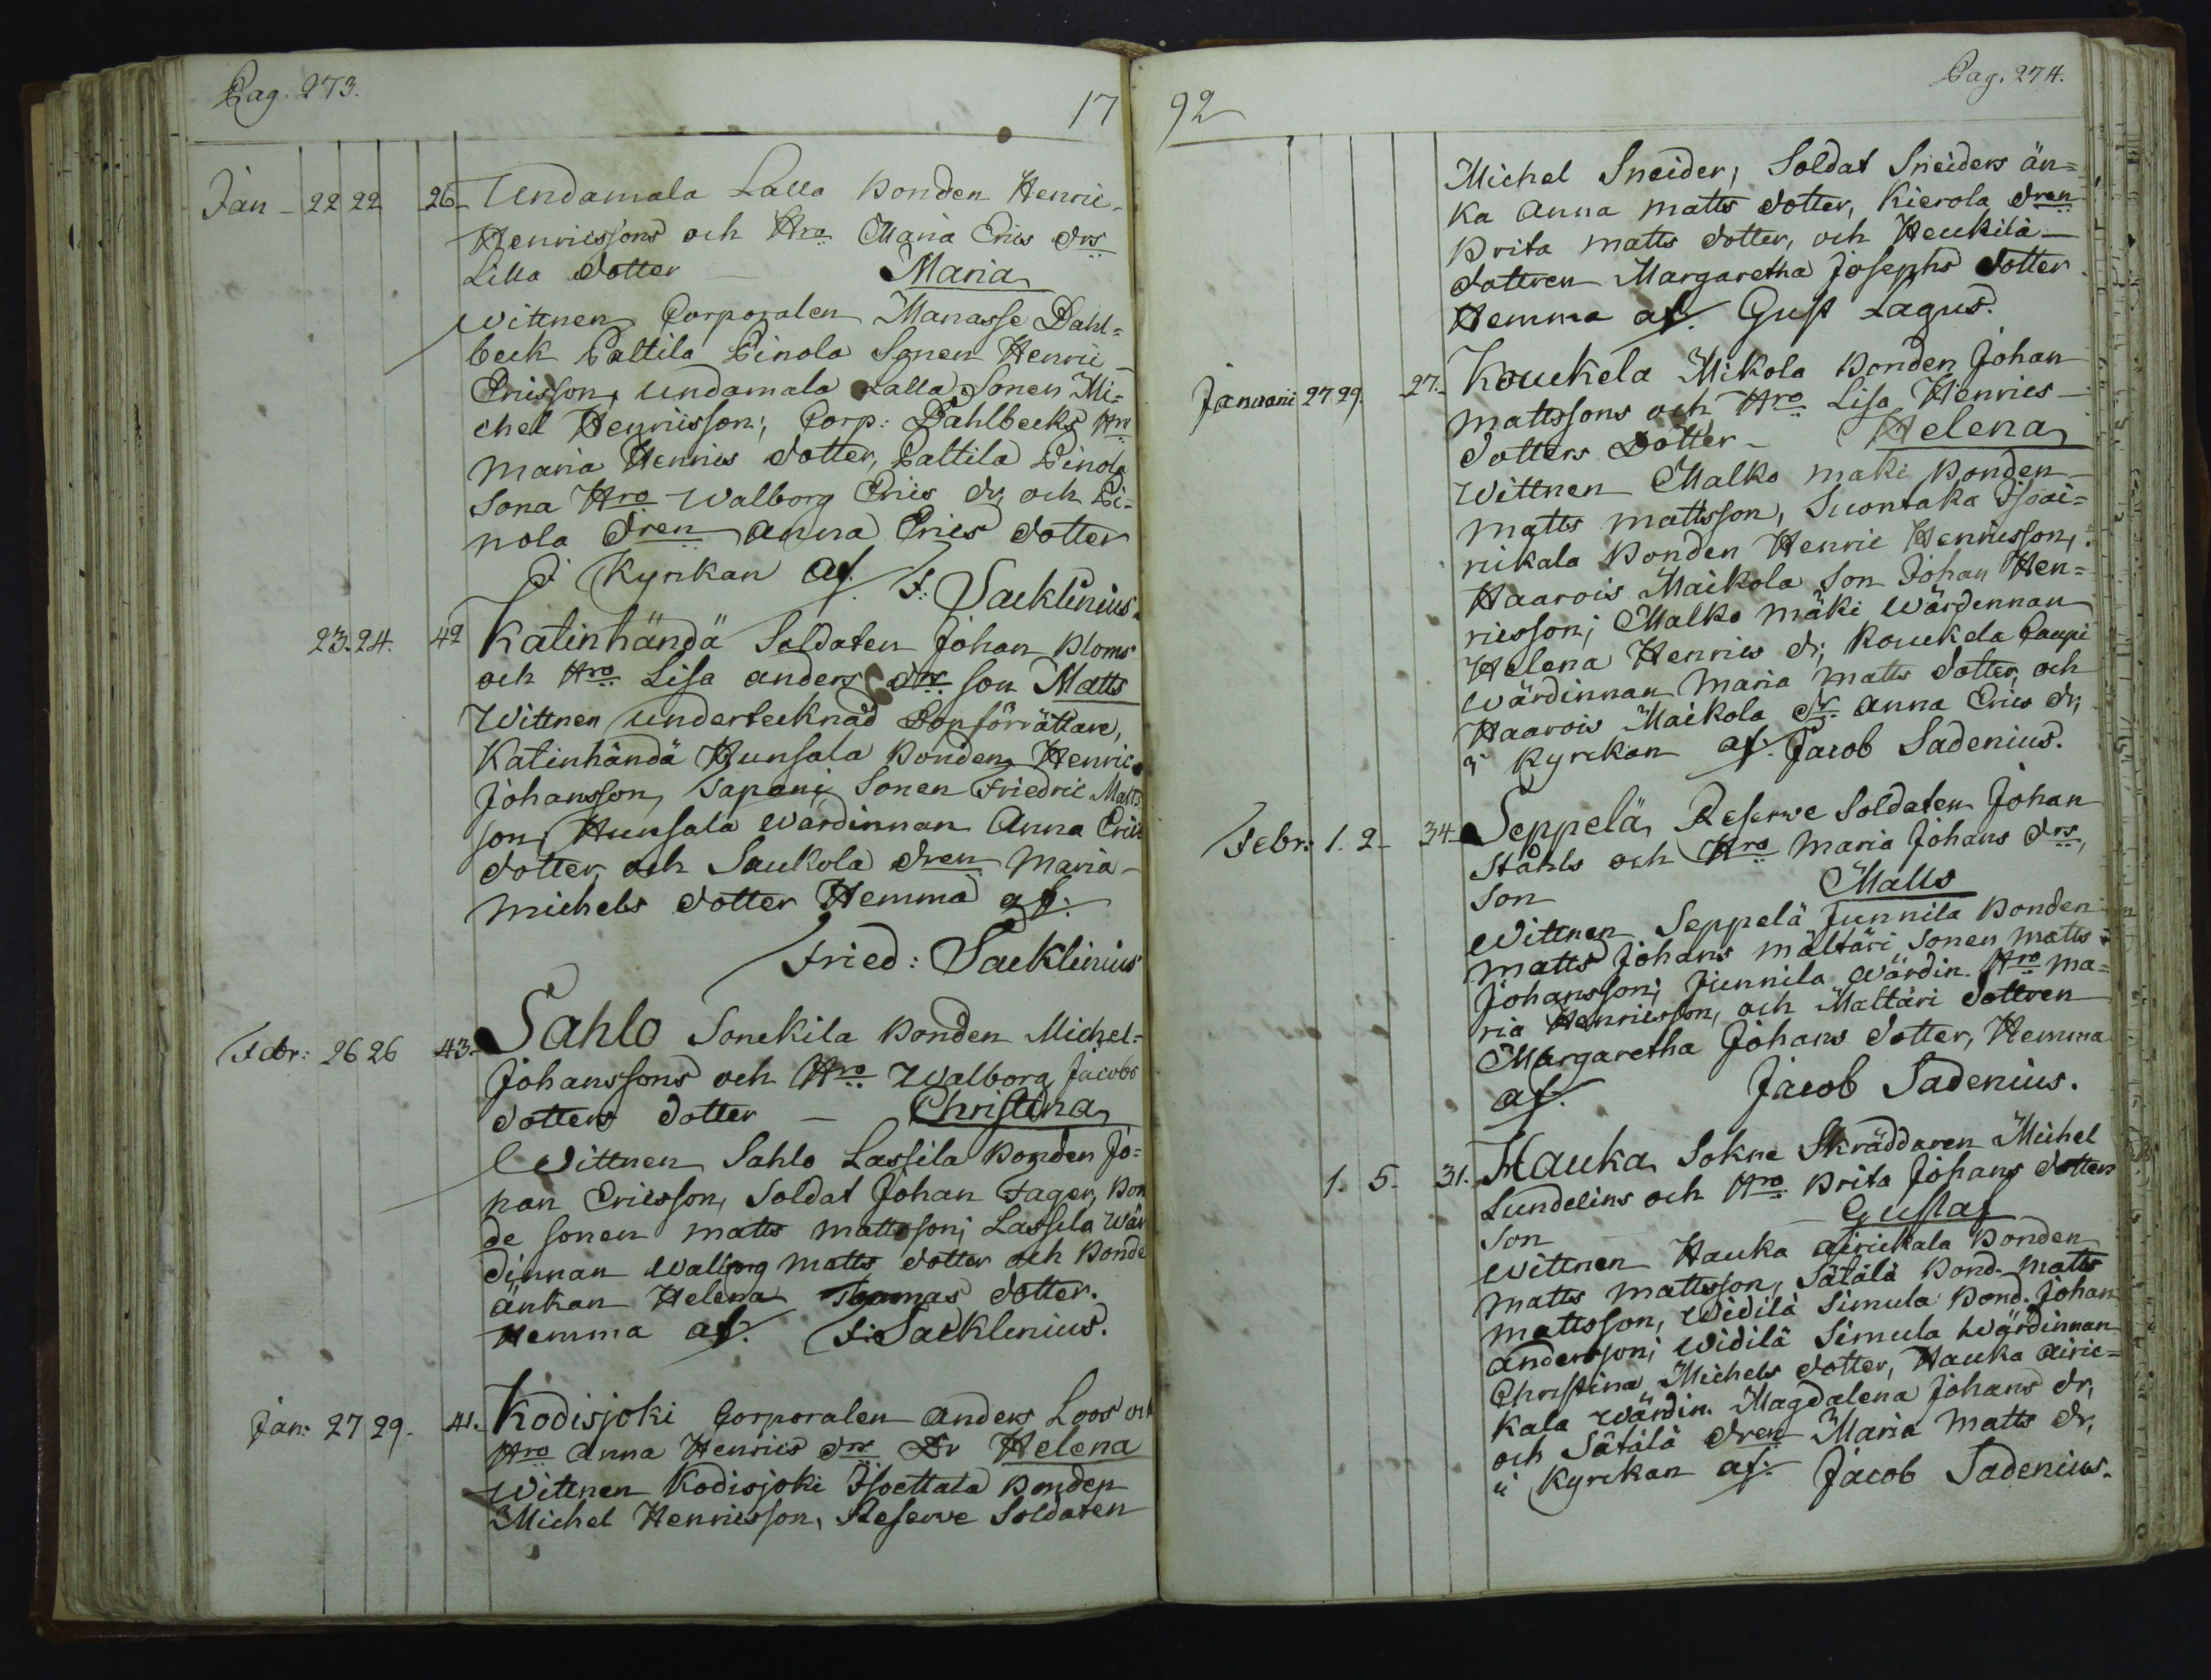 Pag. 273.
17
Jan - 22 22 26- Undamala Lalla bonden Henric
Henricssons och Hro Maria Erics drs
Lilla dotter - Maria
Wittnen Corporalen Manasse Dahl=
beck Paltila Pinola Sonen Henric
Ericsson, Undamala Lalla Sonen Mi=
chel Henricsson; Corp: Dahlbecks Hro
Maria Henrics dotter, Paltila Pinola
Sona Hro Walborg Erics dr, och Pi=
nola dren Anna Erics dotter
I Kyrkan af. F: Sacklinius.
23. 24. 42 Katinhändä Soldaten Johan Bloms
och Hro Lisa anders drs son Matts
Wittnen undertecknad Dopförrättare,
Katinhändä Hunsala bonden Henric
Johansson, Tapani Sonen Friedric Matts
son; Hunsala wärdinnan Anna Erics
dotter och Saukola dren Maria
Michels dotter Hemma af:
Fried: Sacklinius
Febr: 26 26 43- Sahlo Sonckila bonden Michel=
Johanssons och Hro Walborg Jacobs
dotters dotter - Christina
Wittnen Sahlo Lassila bonden Jo=
han Ericsson, Soldat Johan Fager, Bon
de sonen matts mattsson; Lassila Wär
dinnan Walborg matts dotter och Bonde
änkan Helena Thomas dotter.
Hemma af. F: Sacklinius.
Jan: 27 29. 41. Kodisjoki Corporalen anders Loos och
Hro Anna Henrics drs Dr Helena
Wittnen Kodisjoki Isoettala bonden
Michel Henricsson, Reserve Soldaten
Pag. 274.
92
Michel Sneider, Soldat Sneiders än=
ka Anna matts dotter, Kierola dren
Brita matts dotter, och Heukilä
dottren Margaretha Josephs dotter
Hemma af. Gust Lagus.
Januarii 27 29. 27. Kouckela Mikola bonden Johan
Mattssons och Hro Lisa Henrics
dotters Dotter - Helena
Wittnen Malko maki bonden
Matts mattsson, Suontaka Isoai=
rikala bonden Henric Henricsson,
Haarois Maikola Son Johan Hen=
ricsson; Malko mäki Wärdinnan
Helena Henrics dr; Kouckela Caupi
Wärdinnan Maria Matts dotter, och
Haarois Maikola dr Anna Erics dr,
i Kyrckan af. Jacob Sadenius.
Febr: 1. 2. 34. Seppelä, Reserve Soldaten Johan
Ståhls och Hro Maria Johans drs,
Son Matts
Wittnen Seppelä Junnila bonden
Matts Johans mältäri, Sonen Matts
Johansson; Junnila Wärdin. Hro Ma=
ria Henricsson, och Mältäri dottren
Margaretha Johans dotter, Hemma
af. Jacob Sadenius.
1. 5. 31. Hauka Sokne Skräddaren Michel
Lundelins och Hro Brita Johans dotters
Son - Gustaf
Wittnen Hauka airickala bonden
Matts mattsson, Sätälä bond. Matts
Mattsson, Widilä Simula bond. Johan
Andersson; Widilä Simula Wärdinnan
Christina Michels dotter, Hauka airic=
kala Wärdin. Magdalena Johans dr,
och Sätälä dren Maria Matts dr,
i Kyrckan af: Jacob Sadenius.